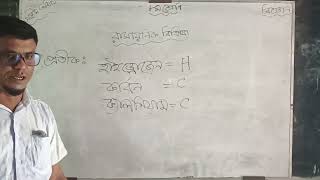 রাসায়নিক বিক্রিয়া
প্রতীক:
হাইড্রোজেন = H
কার্বন = C
ক্যালসিয়াম = C